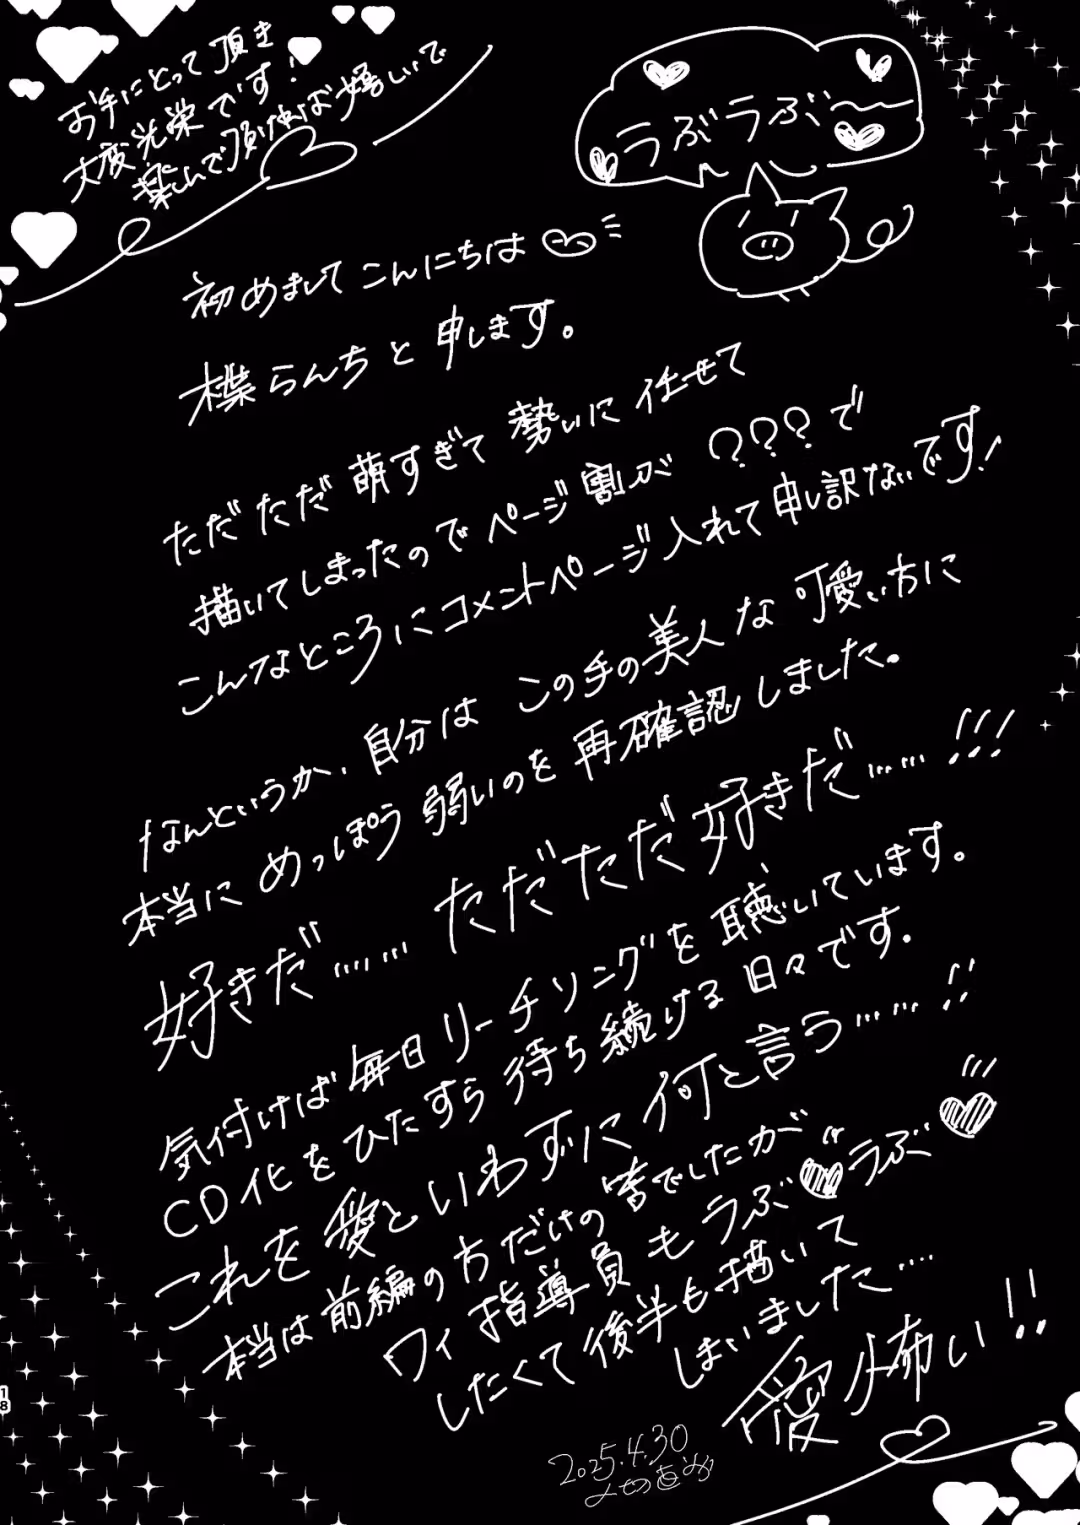 お手にとって頂き
大変光栄です!
楽しんで頂ければ嬉しいで
ラぶラぶ〜〜
初めましてこんにちは
檪らんちと申します。
ただただ萌すぎて勢いに任せて
描いてしまったのでページ割が???で
こんなところにコメントページ入れて申し訳ないです!
なんというか、自分はこの手の美人な可愛い方に
本当にめっぽう弱いのを再確認しました。
好きだ…… ただただ好きだ……!!!
気付けば毎日リーチソングを聴いています。
CD化をひたすら待ち続ける日々です。
これを愛といわずに何と言う……!!
本当は前編の方だけの筈でしたが
ワイ指導員もラぶラぶ
したくて後半も描いて
しまいました…
愛怖い!!
2025.4.30
18